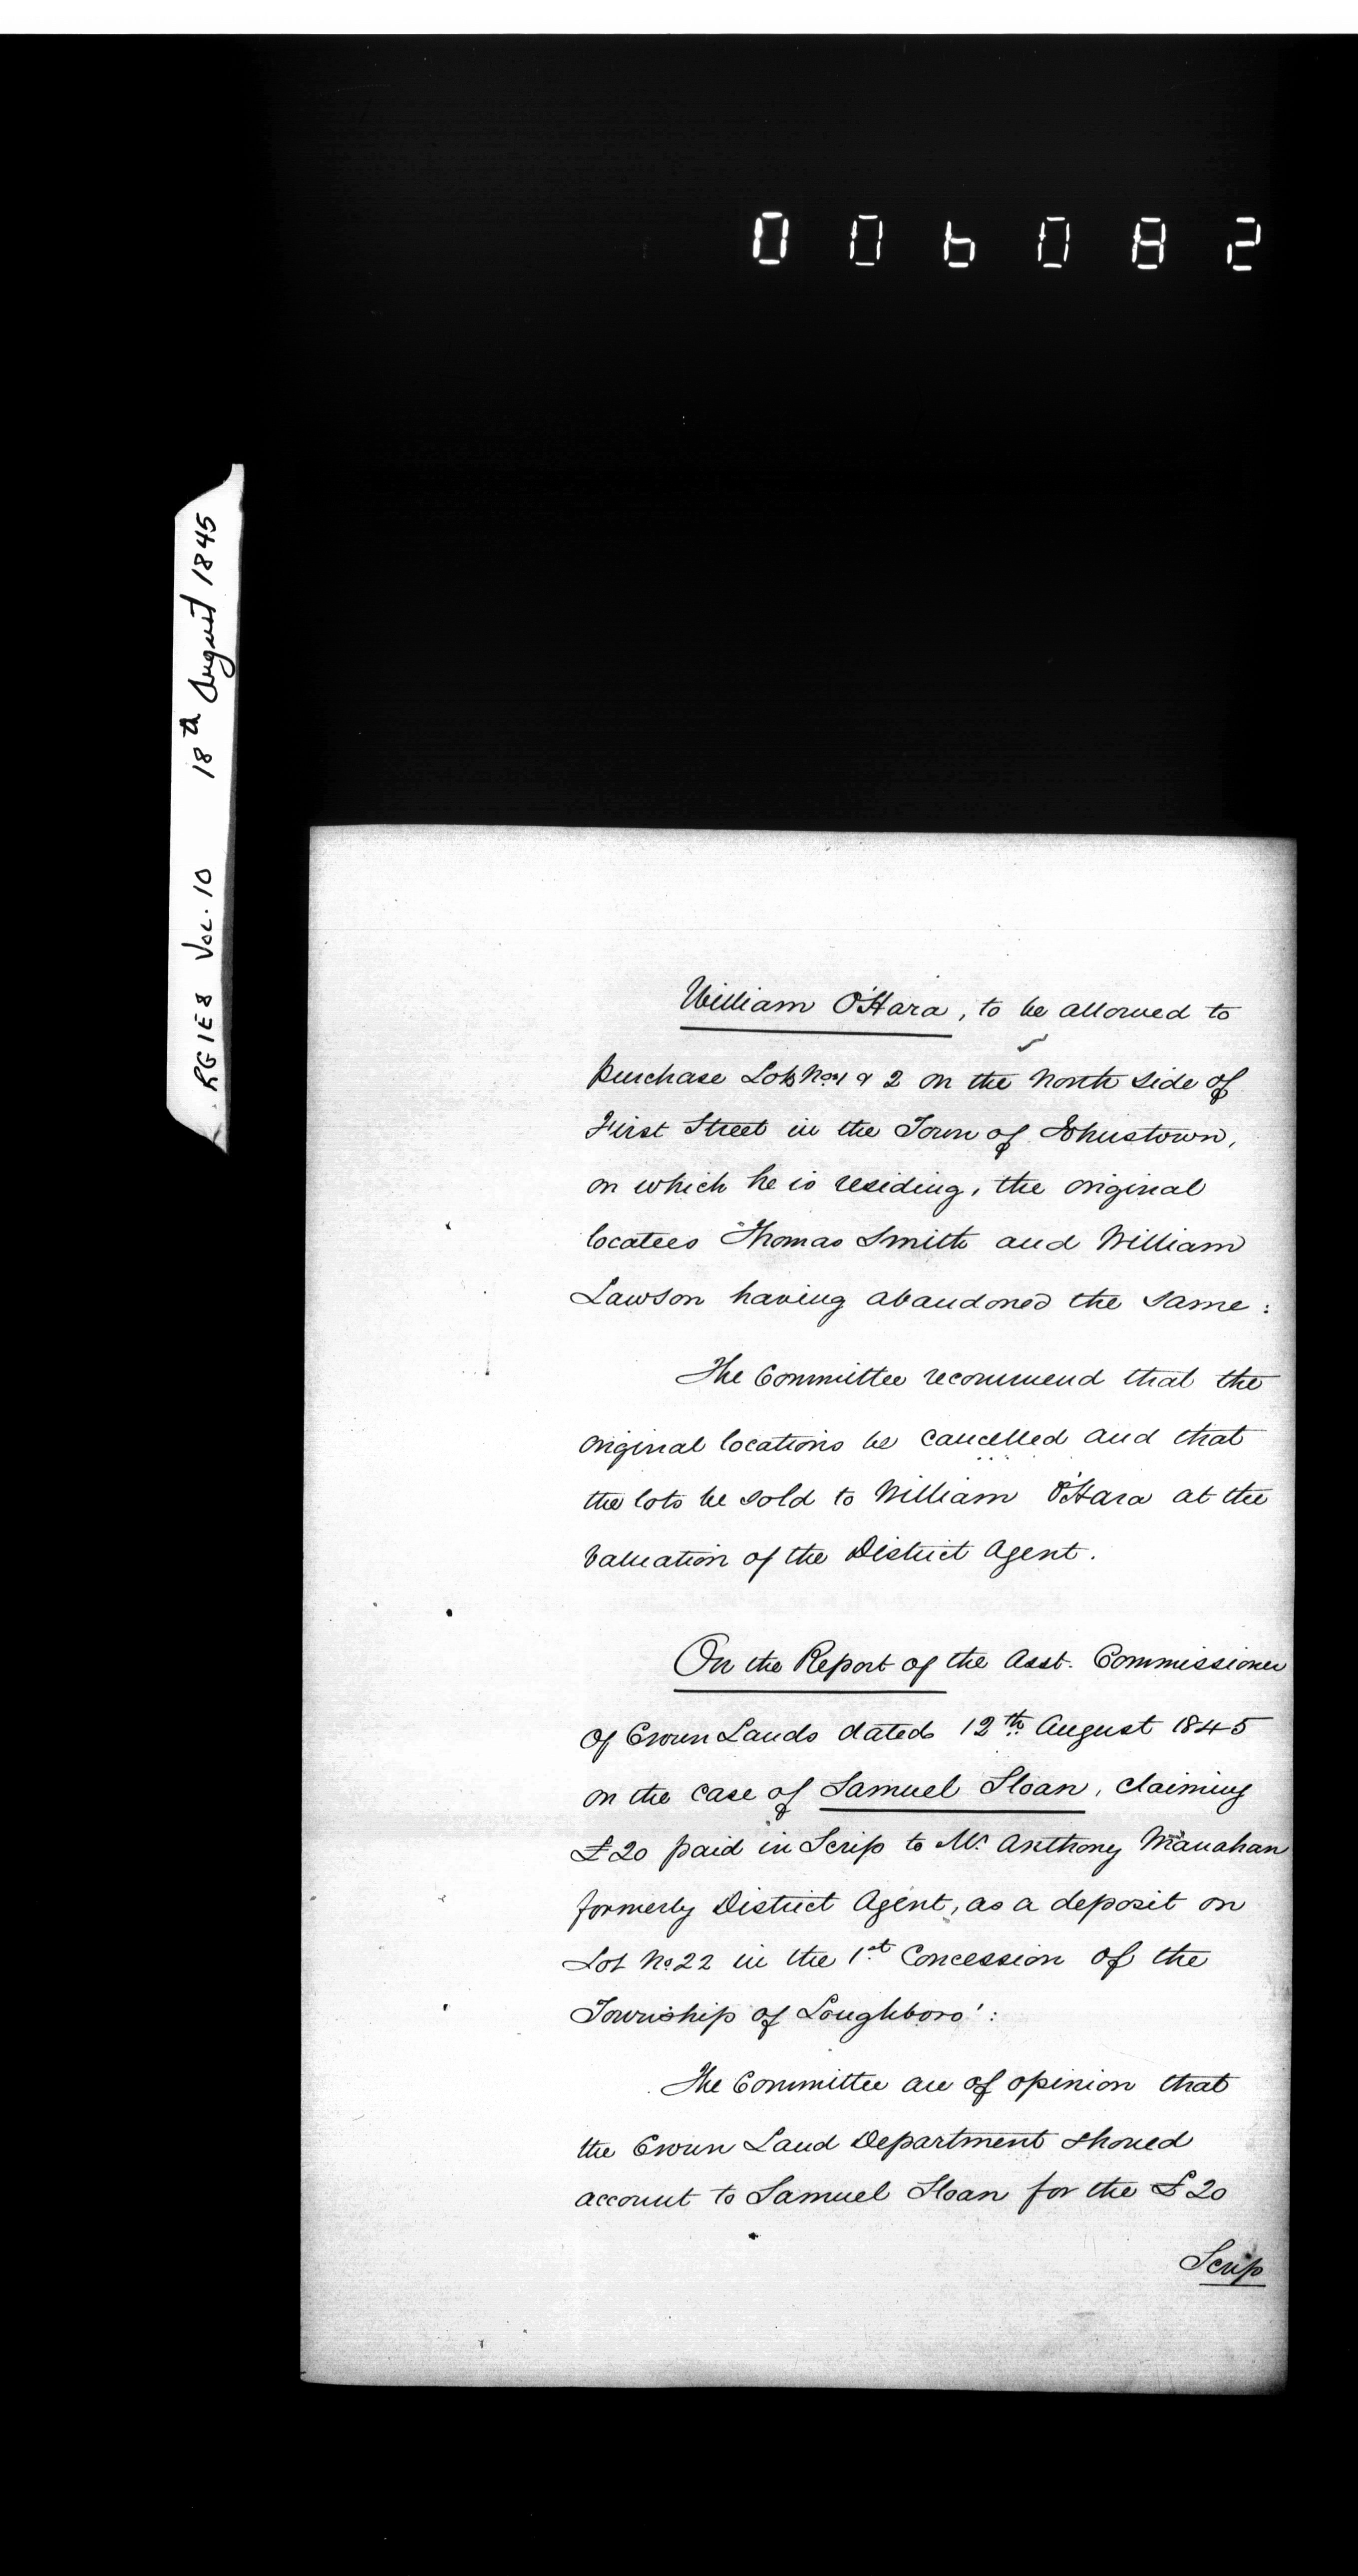 006082
RG1E8 Vol. 10 18th August 1845
William O'Hara, to be allowed to
purchase Lots Nos 1 & 2 on the North side of
First Street in the Town of Johnstown,
on which he is residing, the original
locatees Thomas Smith and William
Lawson having abandoned the same:
The Committee recommend that the
original locations be cancelled and that
the lots be sold to William O'Hara at the
valuation of the District Agent.
On the Report of the Asst. Commissioner
of Crown Lands dated 12th August 1845
on the case of Samuel Sloan, claiming
£20 paid in Scrip to Mr. Anthony Manahan
formerly District Agent, as a deposit on
Lot No 22 in the 1st Concession of the
Township of Loughboro':
The Committee are of opinion that
the Crown Land Department should
account to Samuel Sloan for the £20
Scrip